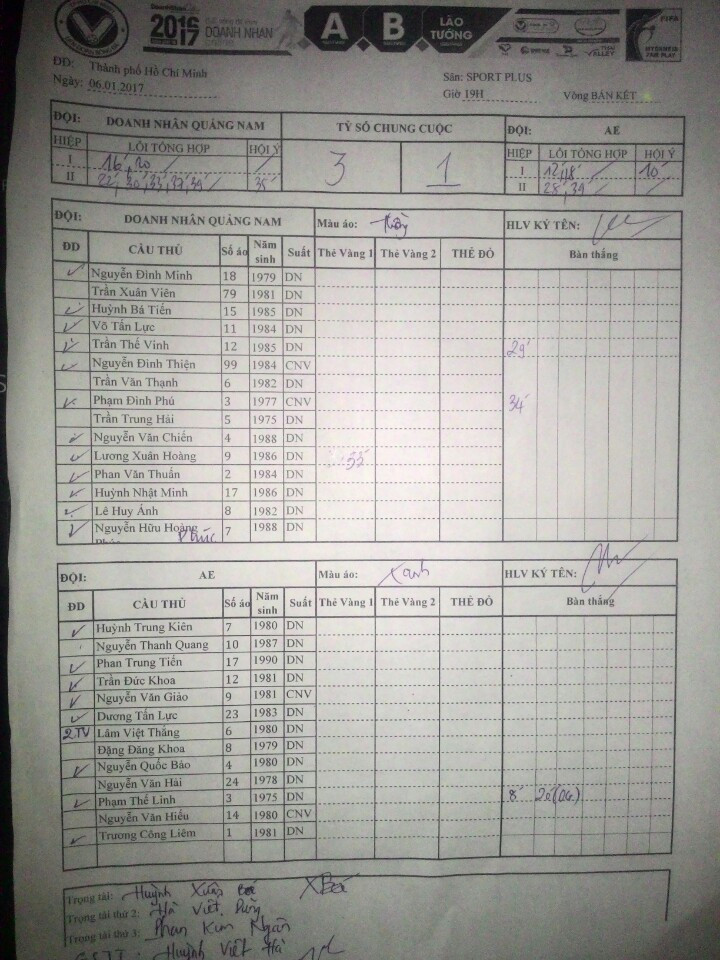 2016
2017
DOANH NHÂN
A B
LÃO TƯỚNG
FIFA
FAIR PLAY
ĐĐ: Thành phố Hồ Chí Minh
Ngày: 06.01.2017
Sân: SPORT PLUS
Giờ 19H Vòng BÁN KẾT
ĐỘI: DOANH NHÂN QUẢNG NAM TỶ SỐ CHUNG CUỘC ĐỘI: AE
HIỆP LỖI TỔNG HỢP HỘI Ý 3 1 HIỆP LỖI TỔNG HỢP HỘI Ý
I 16', 20' I 12', 18' 10'
II 22', 30', 33', 37', 39' 35' II 28', 39'
ĐỘI: DOANH NHÂN QUẢNG NAM Màu áo: HLV KÝ TÊN:
ĐD CẦU THỦ Số áo Năm sinh Suất Thẻ Vàng 1 Thẻ Vàng 2 THẺ ĐỎ Bàn thắng
Nguyễn Đình Minh 18 1979 DN
Trần Xuân Viên 79 1981 DN
Huỳnh Bá Tiến 15 1985 DN
Võ Tấn Lực 11 1984 DN
Trần Thế Vinh 12 1985 DN 29'
Nguyễn Đình Thiện 99 1984 CNV
Trần Văn Thạnh 6 1982 DN
Phạm Đình Phú 3 1977 CNV 34'
Trần Trung Hải 5 1975 DN
Nguyễn Văn Chiến 4 1988 DN
Lương Xuân Hoàng 9 1986 DN 33'
Phan Văn Thuấn 2 1984 DN
Huỳnh Nhật Minh 17 1986 DN
Lê Huy Ánh 8 1982 DN
Nguyễn Hữu Hoàng Phúc 7 1988 DN
ĐỘI: AE Màu áo: Xanh HLV KÝ TÊN:
ĐD CẦU THỦ Số áo Năm sinh Suất Thẻ Vàng 1 Thẻ Vàng 2 THẺ ĐỎ Bàn thắng
Huỳnh Trung Kiên 7 1980 DN
Nguyễn Thanh Quang 10 1987 DN
Phan Trung Tiến 17 1990 DN
Trần Đức Khoa 12 1981 DN
Nguyễn Văn Giáo 9 1981 CNV
Dương Tấn Lực 23 1983 DN
Lâm Việt Thắng 6 1980 DN
Đặng Đăng Khoa 8 1979 DN
Nguyễn Quốc Bảo 4 1980 DN
Nguyễn Văn Hải 24 1978 DN
Phạm Thế Linh 3 1975 DN 8'
Nguyễn Văn Hiếu 14 1980 CNV
Trương Công Liêm 1 1981 DN
Trọng tài: Huỳnh Xuân
Trọng tài thứ 2: Hà Việt Dũng
Trọng tài thứ 3: Phan Kim Ngân
Huỳnh Việt Hà